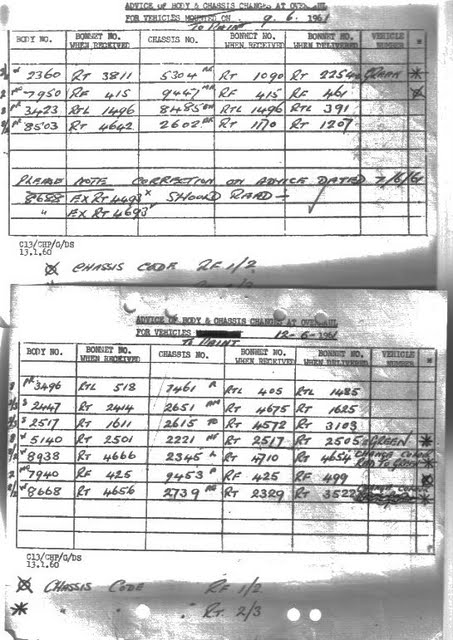 ADVICE OF BODY & CHASSIS CHANGED AT OVERHAUL
FOR VEHICLES MOUNTED ON 9. 6. 1961
TO PAINT
BODY NO. BONNET NO. WHEN RECEIVED CHASSIS NO. BONNET NO. WHEN RECEIVED BONNET NO. WHEN DELIVERED VEHICLE NUMBER *
2360 RT 3811 5304 RT 1090 RT 2254 GREEN *
7950 RF 415 9447 RF 415 RF 461
3423 RTL 1496 8485 RTL 1496 RTL 391
8503 RT 4642 2602 RT 1170 RT 1207
PLEASE NOTE CORRECTION ON ADVICE DATED 7/6/61
8688 EX RT 4493 X SHOULD READ -
" EX RT 4693
C13/CHP/G/DS
13.1.60
CHASSIS CODE RF 1/2
ADVICE OF BODY & CHASSIS CHANGED AT OVERHAUL
FOR VEHICLES 12-6-1961
TO PAINT
BODY NO. BONNET NO. WHEN RECEIVED CHASSIS NO. BONNET NO. WHEN RECEIVED BONNET NO. WHEN DELIVERED VEHICLE NUMBER
3496 RTL 518 7461 RTL 405 RTL 1485
2447 RT 2414 2651 RT 4675 RT 1625
2517 RT 1611 2615 RT 4572 RT 3103
5140 RT 2501 2221 RT 2517 RT 2505 GREEN *
8938 RT 4666 2345 RT 4710 RT 4654 CHANGE COLOUR RED TO GREEN *
7940 RF 425 9453 RF 425 RF 499
8668 RT 4656 2739 RT 2329 RT 3522 *
C13/CHP/G/DS
13.1.60
CHASSIS CODE RF 1/2
* " " RT 2/3